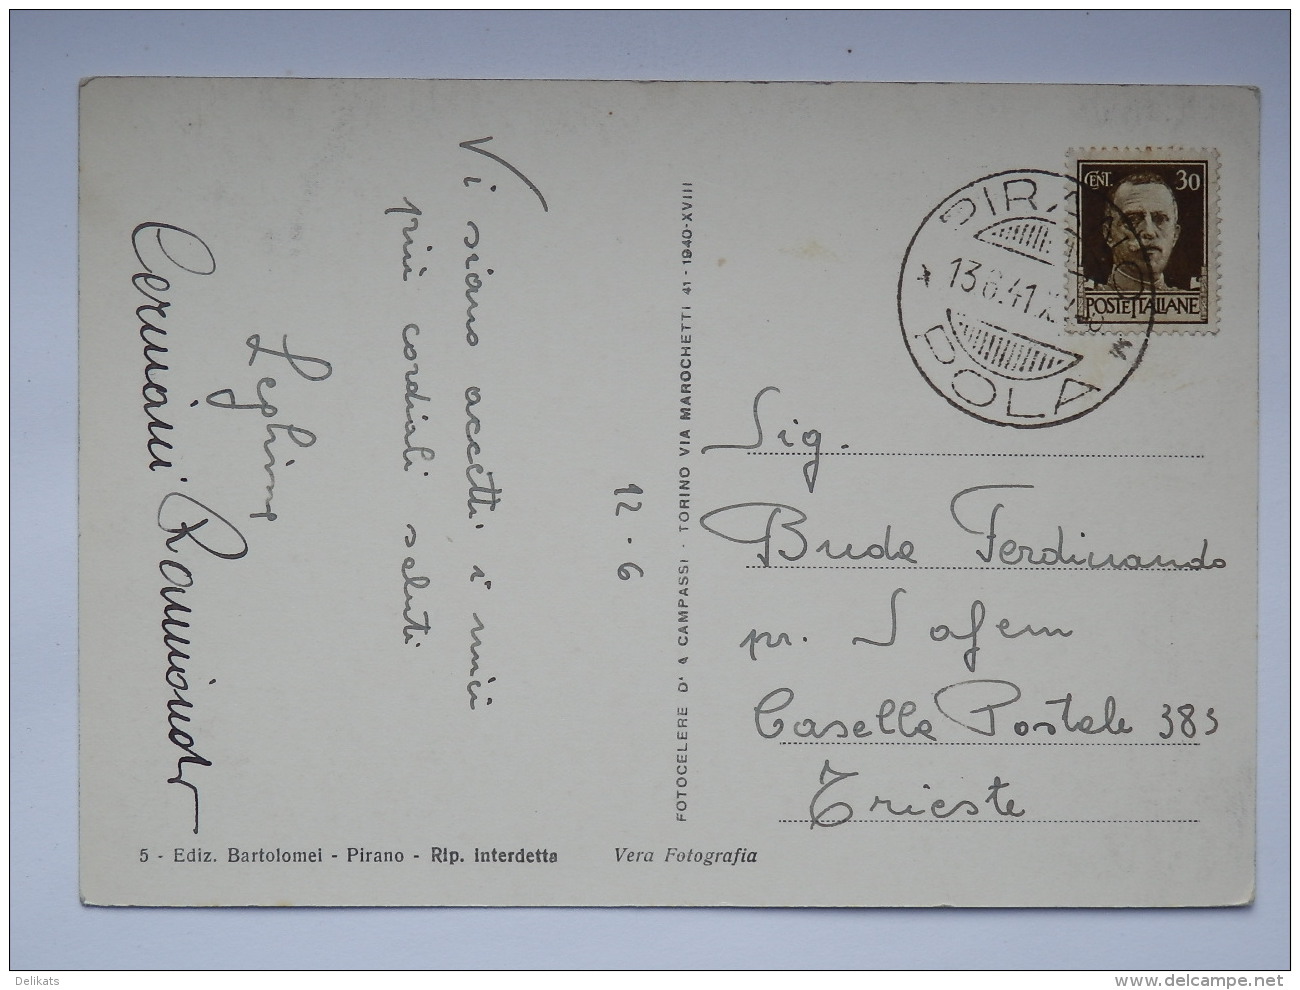 Vi siano accetti i miei
più cordiali saluti
12-6
FOTOCELERE DI A CAMPASSI - TORINO VIA MAROCHETTI 41 - 1940-XVIII
CENT. 30
POSTE ITALIANE
PIRANO
13.6.41.
POLA
Sig.
Buda Ferdinando
pr. Safem
Casella Postale 383
Trieste
5 - Ediz. Bartolomei - Pirano - Rip. Interdetta
Vera Fotografia
Delikats
www.delcampe.net